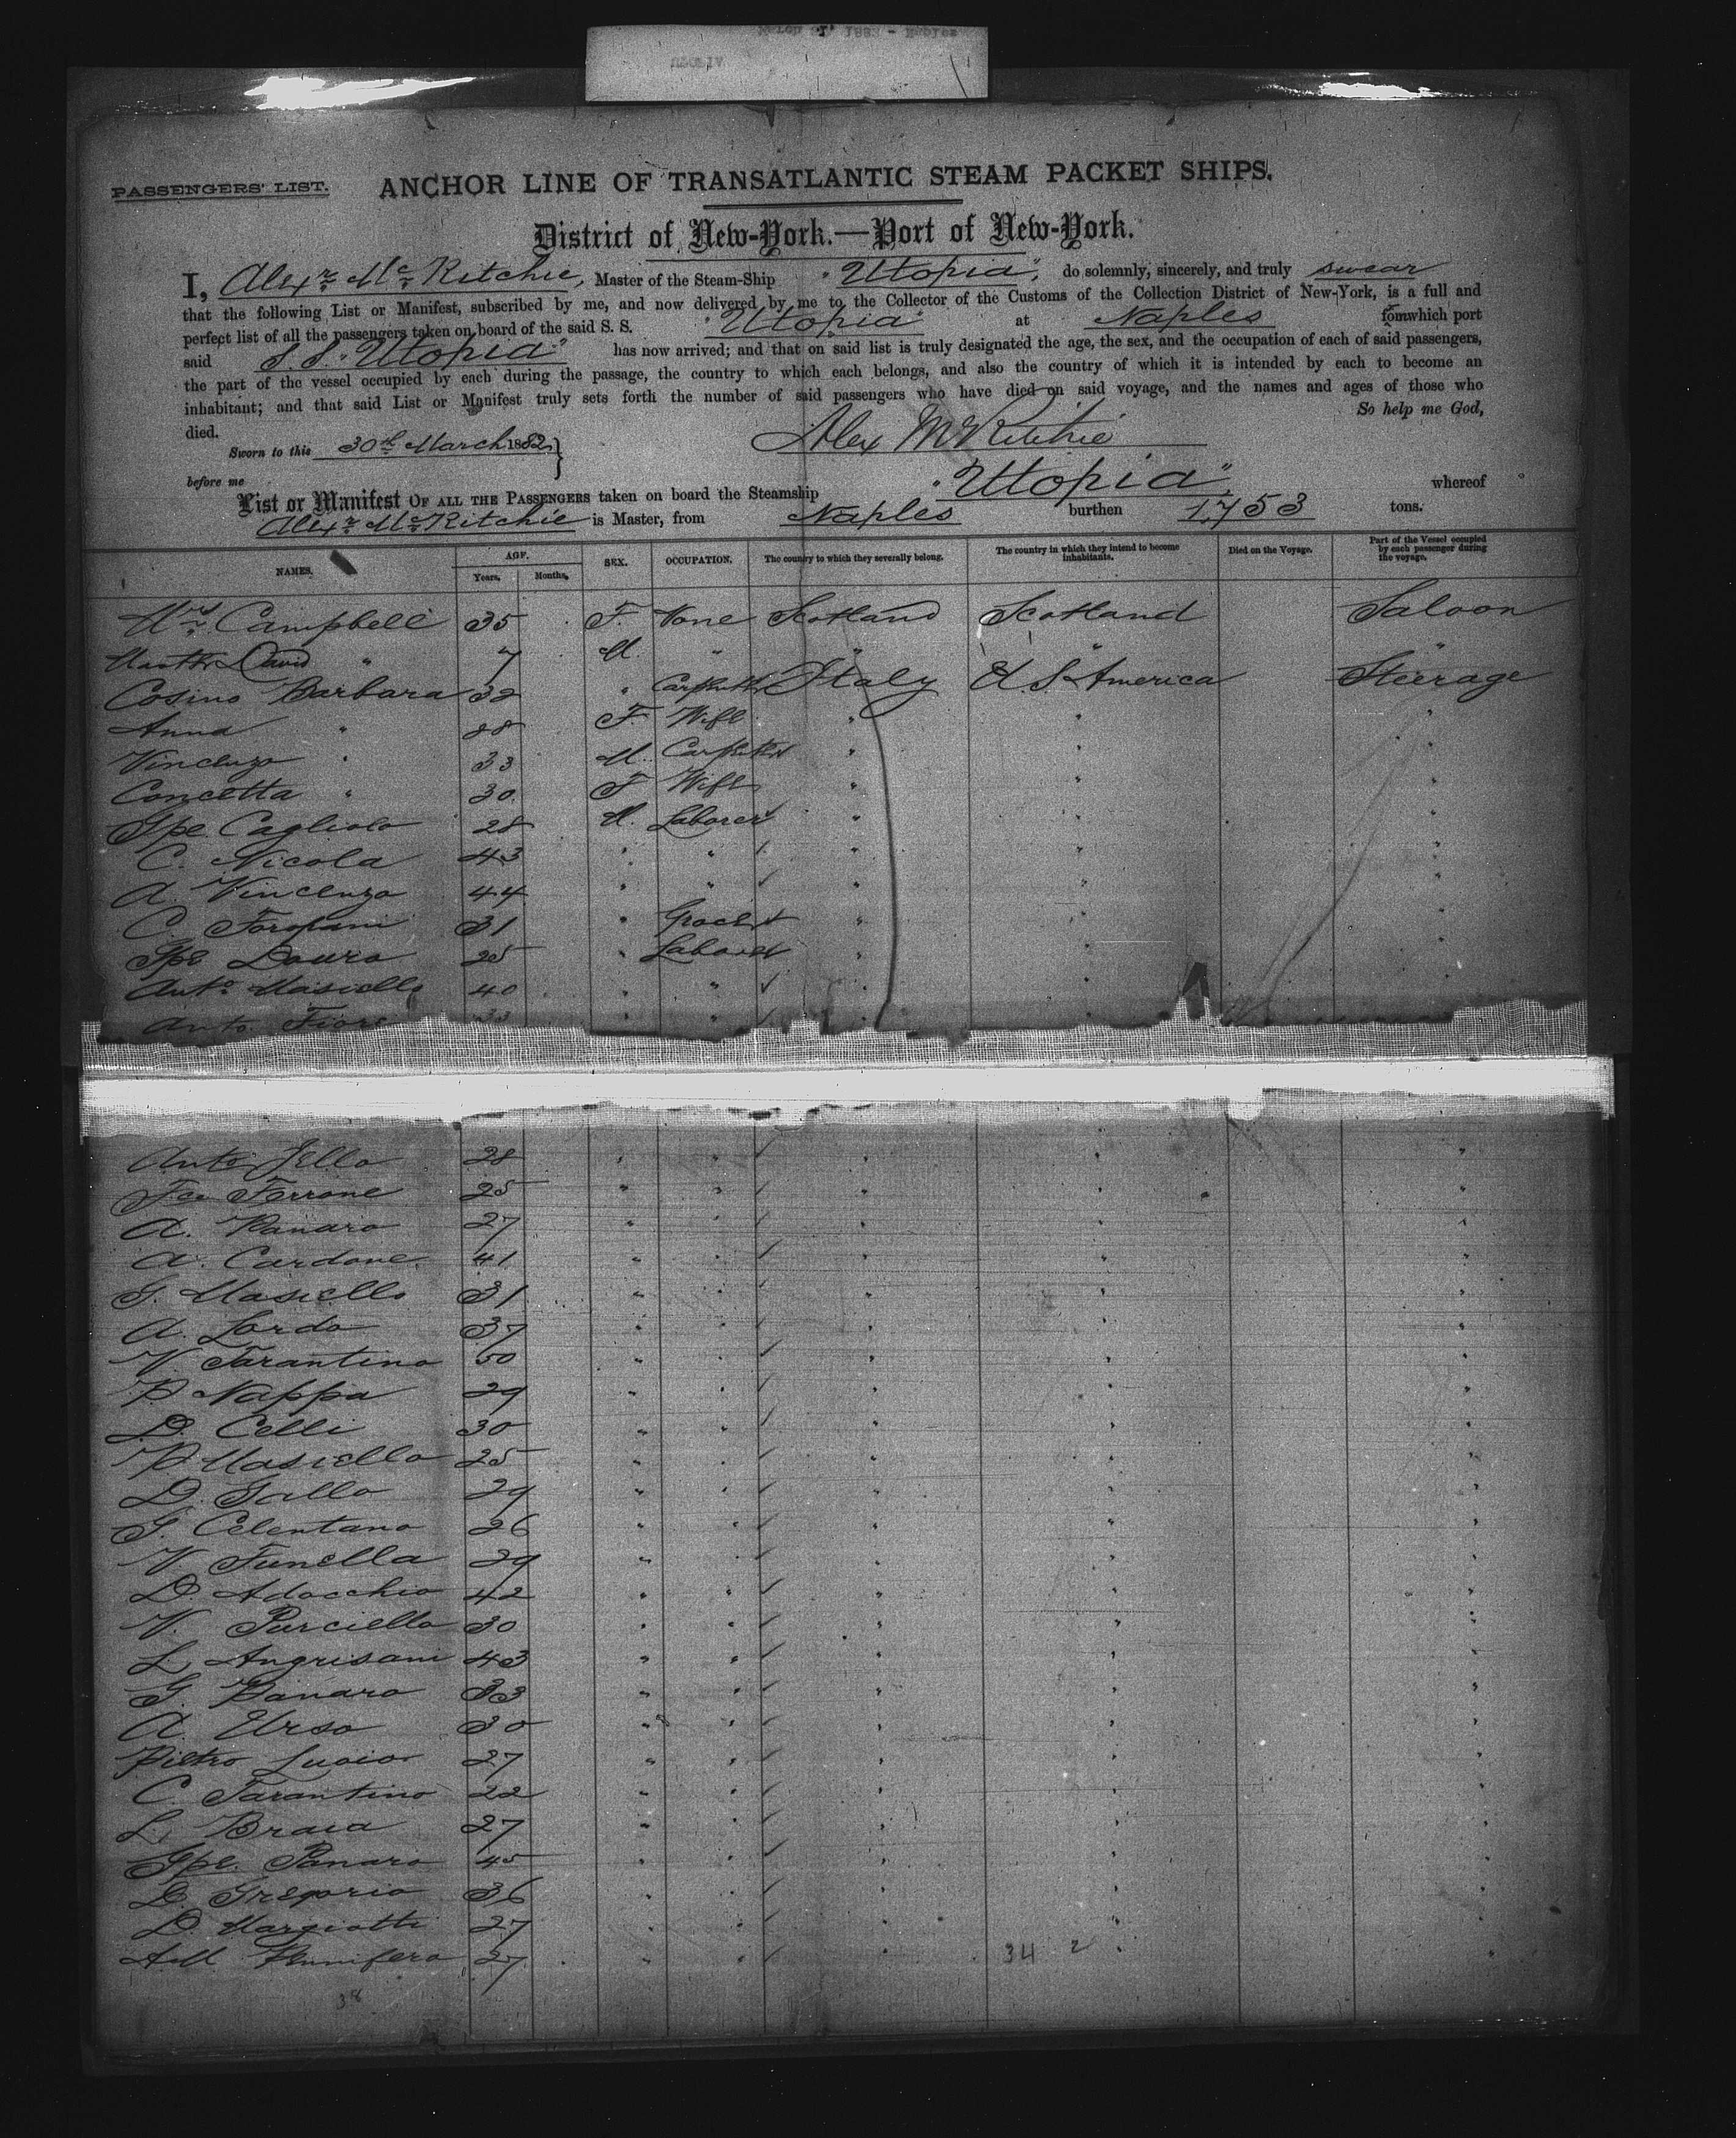 PASSENGERS' LIST.
ANCHOR LINE OF TRANSATLANTIC STEAM PACKET SHIPS.
District of New-York.—Port of New-York.
I, Alexr. Mc. Ritchie, Master of the Steam-Ship "Utopia", do solemnly, sincerely, and truly swear
that the following List or Manifest, subscribed by me, and now delivered by me to the Collector of the Customs of the Collection District of New-York, is a full and
perfect list of all the passengers taken on board of the said S. S. "Utopia" at Naples fom which port
said S.S. "Utopia" has now arrived; and that on said list is truly designated the age, the sex, and the occupation of each of said passengers,
the part of the vessel occupied by each during the passage, the country to which each belongs, and also the country of which it is intended by each to become an
inhabitant; and that said List or Manifest truly sets forth the number of said passengers who have died on said voyage, and the names and ages of those who
died. So help me God,
Sworn to this 30th March 1882 Alex McRitchie
before me
List or Manifest OF ALL THE PASSENGERS taken on board the Steamship "Utopia" whereof
Alexr. Mc. Ritchie is Master, from Naples burthen 1753 tons.
NAMES. AGE. Years, Months, SEX. OCCUPATION. The country to which they severally belong. The country in which they intend to become inhabitants. Died on the Voyage. Part of the Vessel occupied by each passenger during the voyage.
Mrs. Campbell 35 F. None Scotland Scotland Saloon
Mastr David " 7 M. " " " "
Cosimo Barbara 32 " Carpenter Italy U.S. America Steerage
Anna " 28 F. Wife " " "
Vincenzo " 33 M. Carpenter " " "
Concetta " 30 F Wife " " "
Gpe. Cagliolo 28 M. Laborer " " "
C. Nicola 43 " " " " "
A. Vincenzo 44 " " " " "
C. 31 " Grocer " " "
Gpe Douro 25 " Laborer " " "
Anto. Masiello 40 " " " " "
Anto. Fiore 33 " " "
Anto. Jello 28 " " " " "
Fco Ferrone 25 " " " " "
A. Panaro 27 " " " " "
A. Cardone 41 " " " " "
G. Masiello 31 " " " " "
A. Lordo 37 " " " " "
V. Tarantino 50 " " " " "
P. Nappa 29 " " " " "
D. Celli 30 " " " " "
P. Masiello 25 " " " " "
D. Gallo 29 " " " " "
G. Celentano 26 " " " " "
V. Funella 29 " " " " "
D. Adocchio 42 " " " " "
V. Purciello 30 " " " " "
L. Angrisani 43 " " " " "
G. Panaro 33 " " " " "
A. Urso 30 " " " " "
Pietro Lucio 27 " " " " "
C. Tarantino 22 " " " " "
L. Braia 27 " " " " "
Gpe. Panaro 45 " " " " "
D. Gregorio 36 " " " " "
D. Margiotti 27 " " " " "
27 " " " 34 2 " "
38